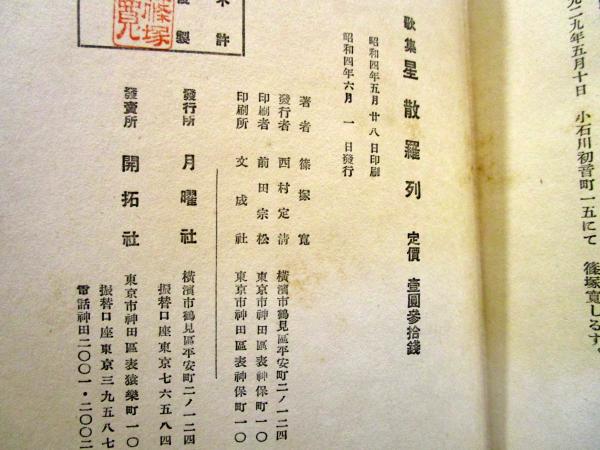 九二九年五月十日　小石川初音町一五にて　篠塚寛しるす。
歌集　星散羅列　定價　壹圓參拾錢
昭和四年五月廿八日印刷
昭和四年六月　一　日發行
著者　篠塚寛
發行者　西村定清　横濱市鶴見區平安町二ノ一二四
印刷者　前田宗松　東京市神田區表神保町一〇
印刷所　文成社　東京市神田區表神保町一〇
發行所　月曜社　横濱市鶴見區平安町二ノ一二四
振替口座東京七六五八四
發賣所　開拓社　東京市神田區表猿樂町一〇
振替口座東京三九五八七
電話神田二〇〇一・二〇〇二
不許
複製
篠塚寛